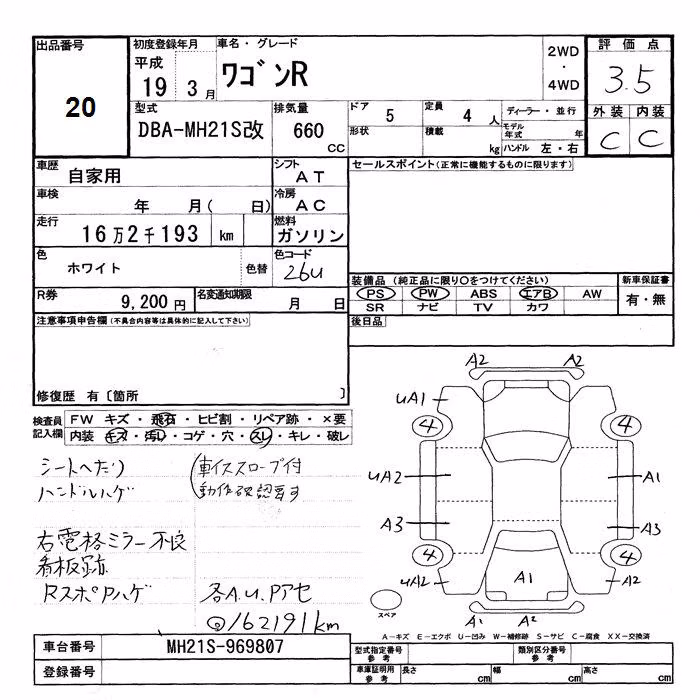 出品番号
20
初度登録年月
平成
19 3 月
車名・グレード
ワゴンR
2WD
・
4WD
評価点
3.5
型式
DBA-MH21S改
排気量
660
cc
ドア
5
定員
4 人
ディーラー・並行
形状
積載
kg
モデル年式
年
ハンドル 左・右
外装 内装
C C
車歴
自家用
シフト
AT
車検
年 月( 日)
冷房
AC
走行
16万2千193 km
燃料
ガソリン
色
ホワイト
色替
色コード
26U
R券
9,200 円
名変通知期限
月 日
セールスポイント(正常に機能するものに限ります)
装備品 (純正品に限り○をつけてください)
PS PW ABS エアB AW
SR ナビ TV カワ
新車保証書
有・無
後日品
注意事項申告欄(不具合内容等は具体的に記入して下さい)
修復歴 有〔箇所 〕
検査員
記入欄
FW キズ・飛石・ヒビ割・リペア跡・×要
内装 キズ・汚レ・コゲ・穴・スレ・キレ・破レ
シートへたり
ハンドルハゲ
(車イススロープ付
動作確認要す
右電格ミラー不良
看板跡
RスポPハゲ
各A.U.Pアセ
◎162191km
A2 A2
UA1
4 4
UA2 A1
A3 A3
4 4
UA2 A1 A2
スペア
A1 A2
A-キズ E-エクボ U-凹み W-補修跡 S-サビ C-腐食 XX-交換済
車台番号
MH21S-969807
登録番号
型式指定番号
参考
類別区分番号
参考
車庫証明用
参考
長さ cm
幅 cm
高さ cm